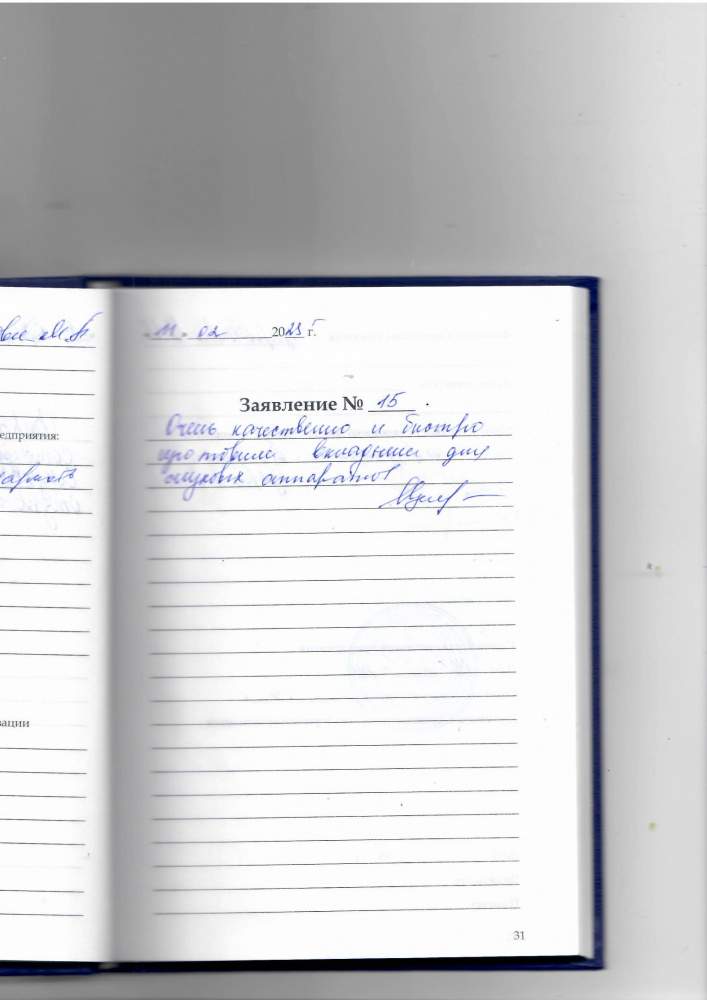 "11" 02 2023 г.
Заявление № 15
Очень качественно и быстро
изготовили вкладыши для
слуховых аппаратов
едприятия:
зации
31